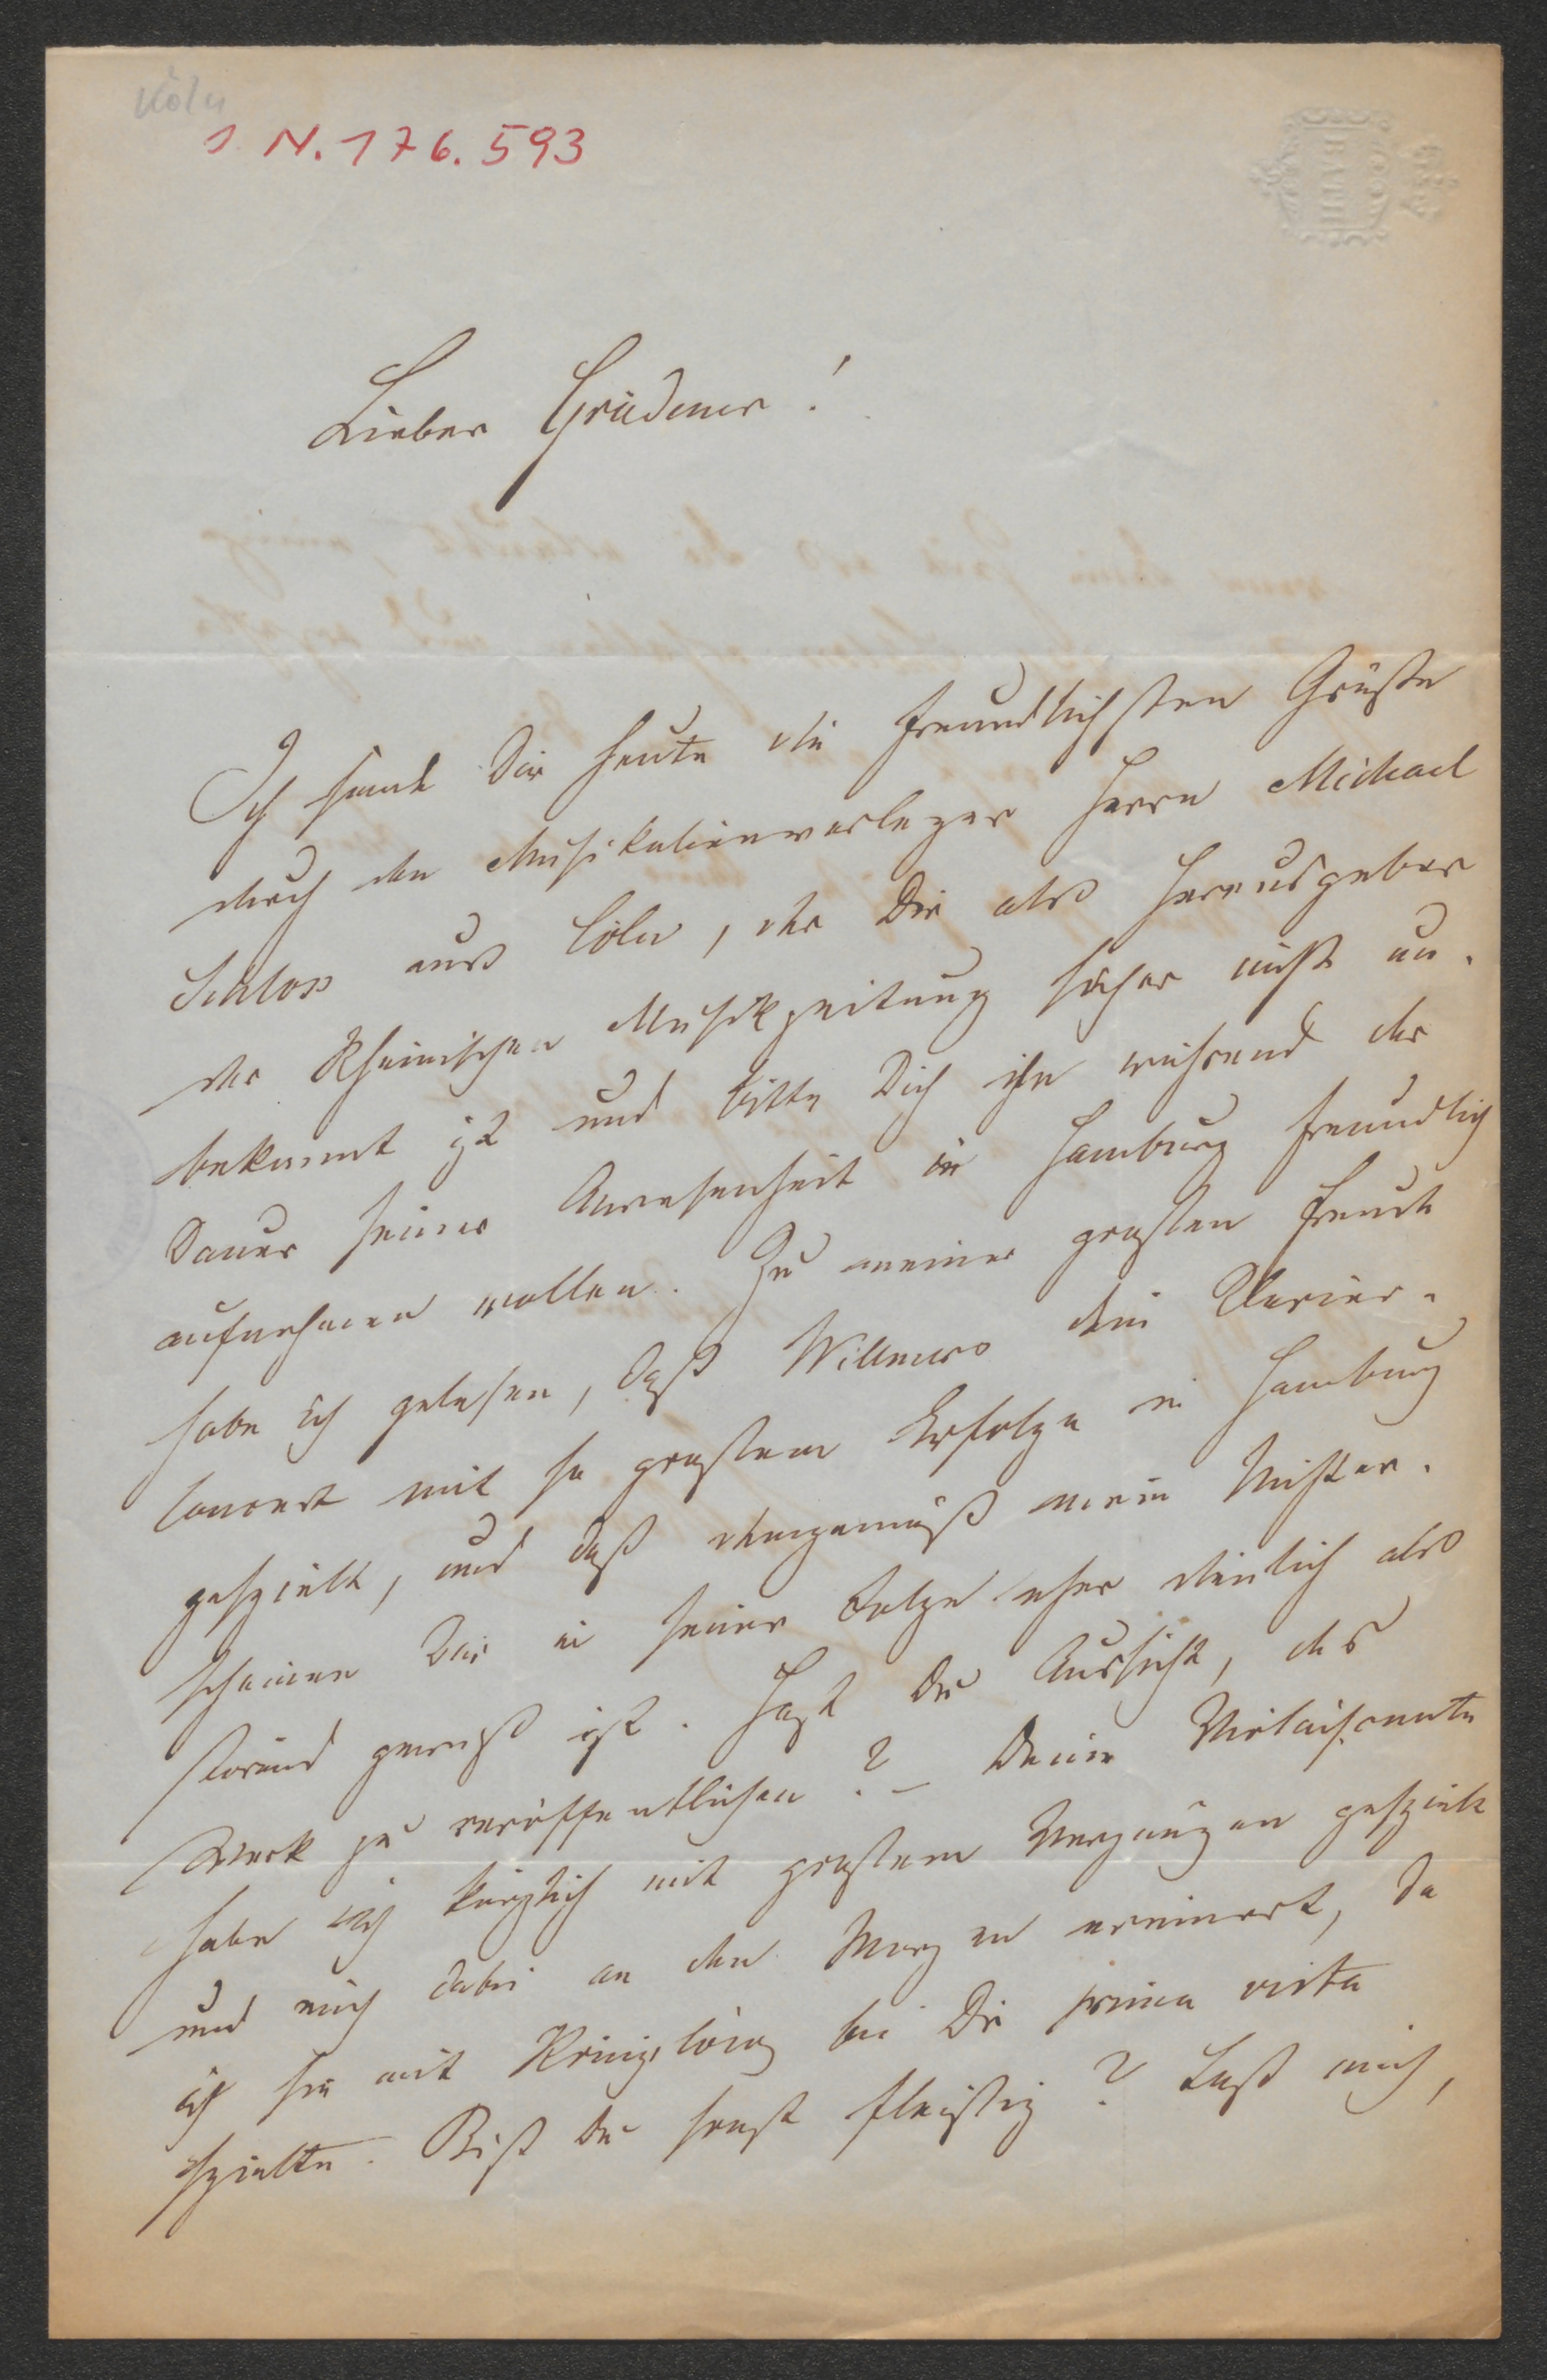 Köln
J. N. 176.593
BATH
Lieber Grädener!
Ich sende Dir heute die freundlichsten Grüße
durch den Musikalienverleger Herrn Michael
Schloss aus Cöln, der Dir als Herausgeber
der Rheinischen Musikzeitung sicher nicht un-
bekannt ist und bitte Dich ihn während der
Dauer seiner Anwesenheit in Hamburg freundlich
aufnehmen wollen. Zu meiner großen Freude
habe ich gelesen, daß Willmers dein Clavier-
concert mit so großem Erfolge in Hamburg
gespielt, und daß demgemäß mein Nichter-
scheinen Dir in seiner Folge eher dienlich als
störend gewesen ist. Hast Du Aussicht, das
Werk zu veröffentlichen? – Deine Violinsonate
habe ich kürzlich mit großem Vergnügen gespielt
und mich dabei an den Morgen erinnert, da
ich sie mit Königslöw bei Dir prima vista
spielte. Bist Du sonst fleißig? Laß mich,